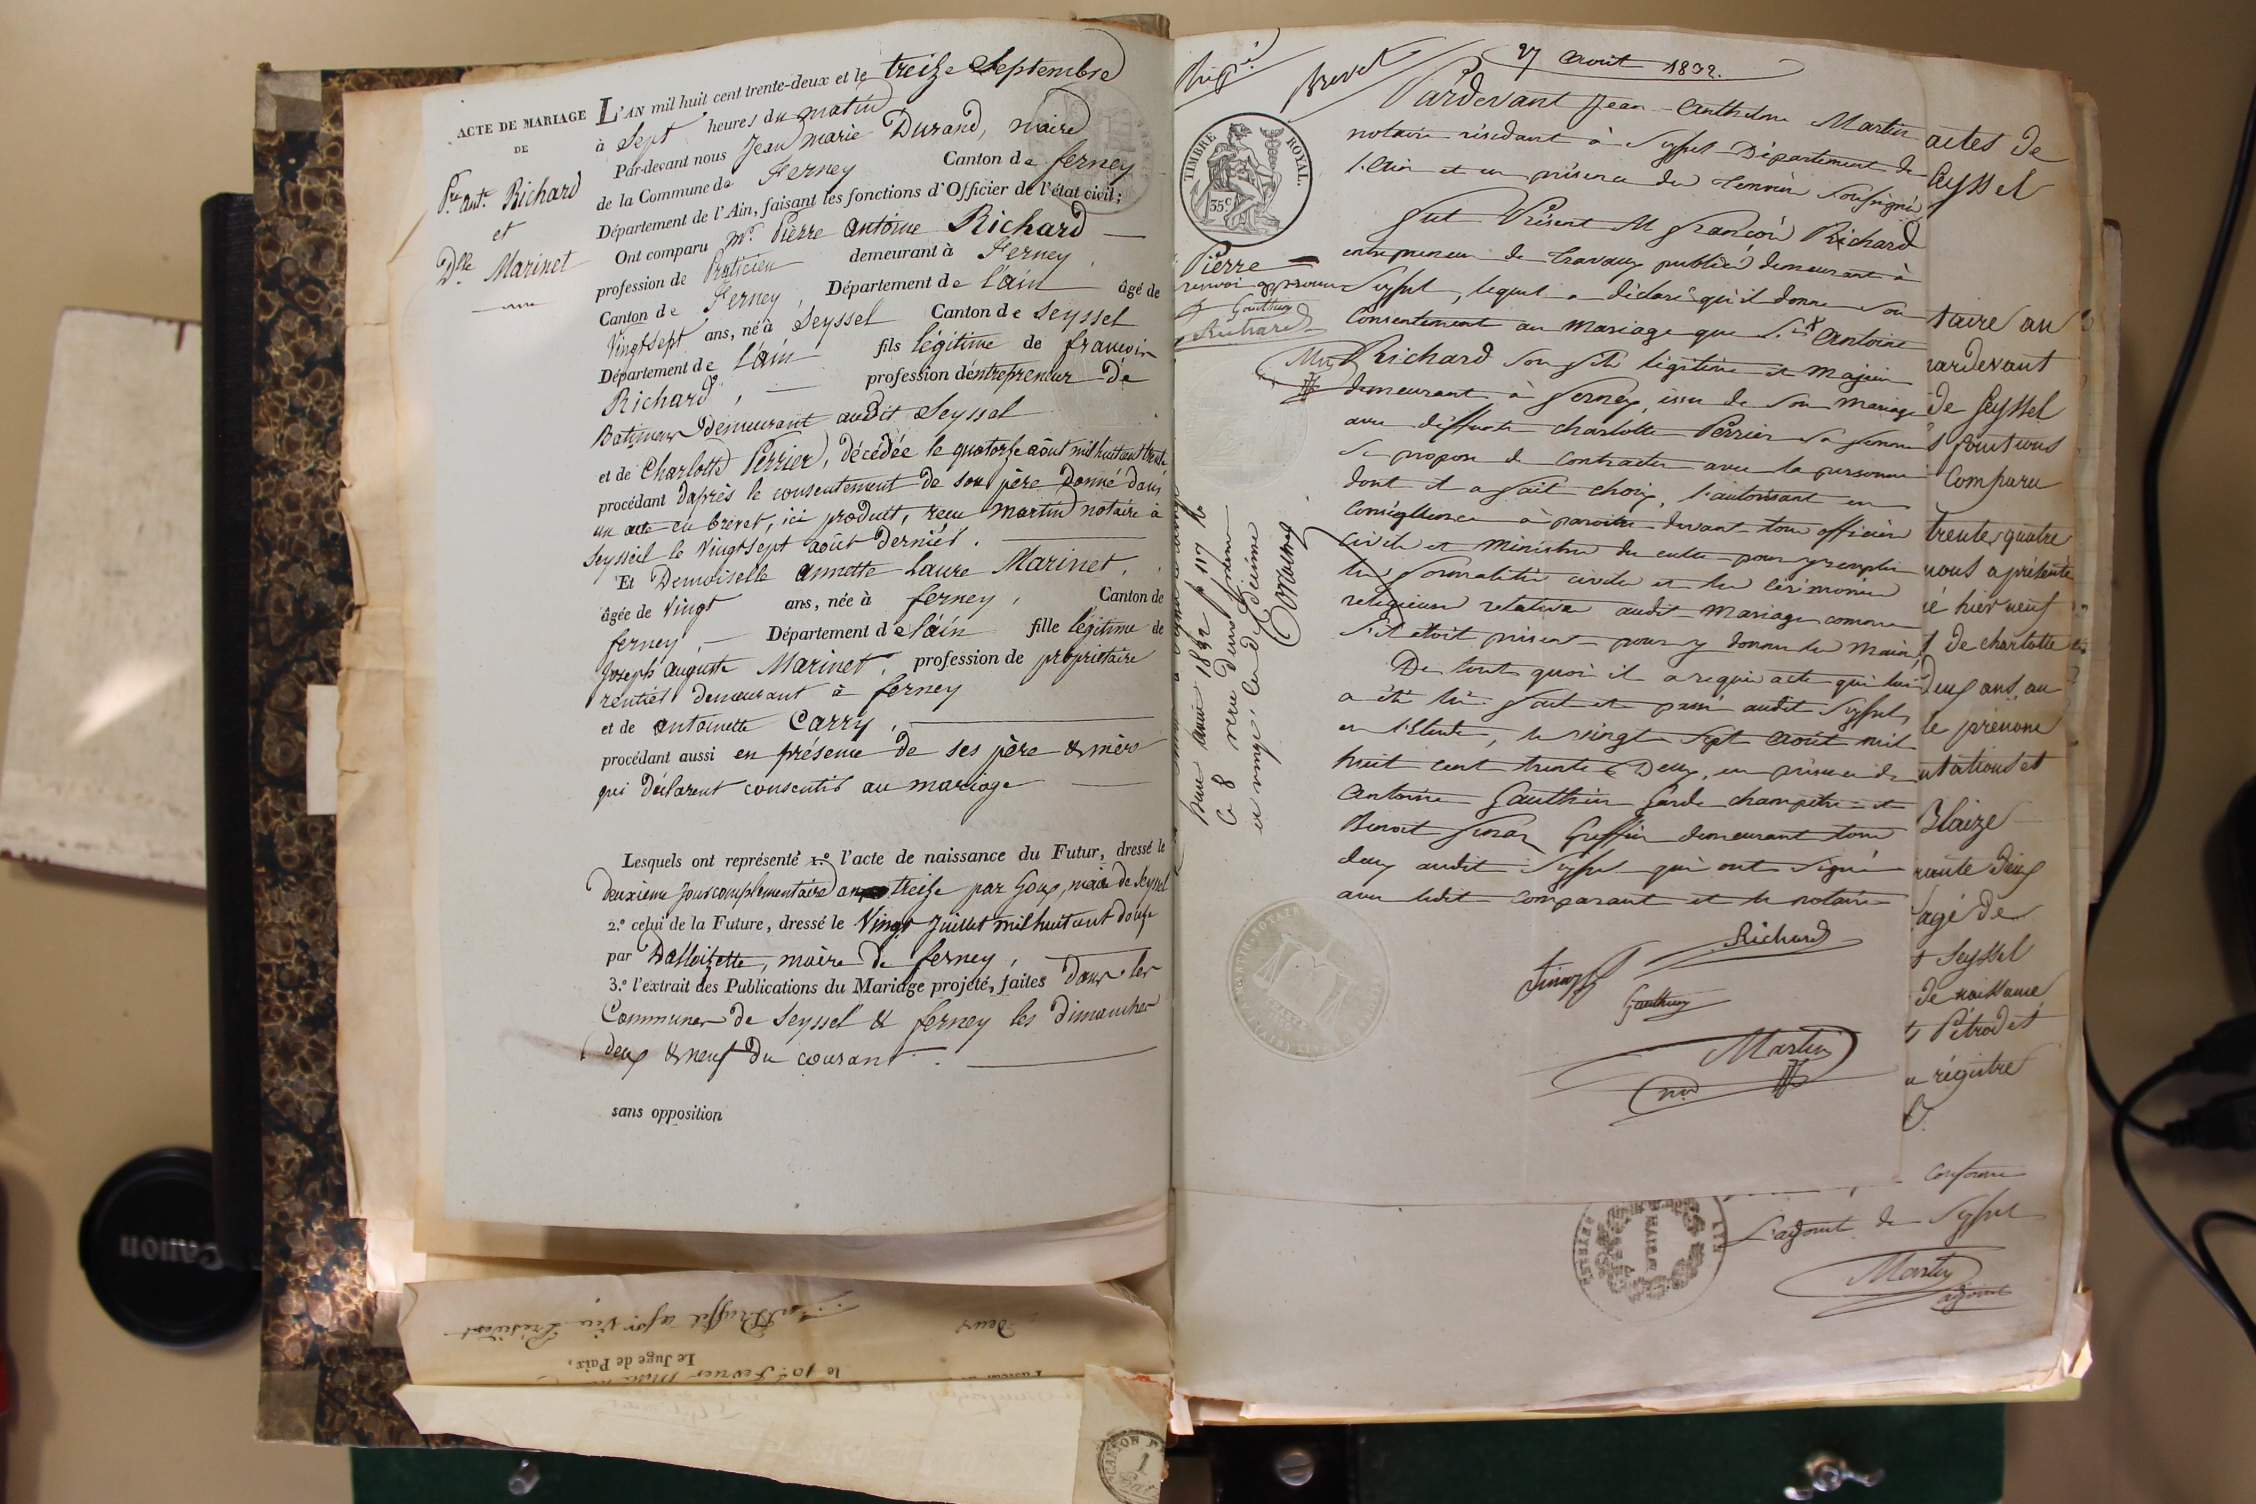 ACTE DE MARIAGE
DE
Pre. ant. Richard
et
Dlle Marinet
L'AN mil huit cent trente-deux et le treize Septembre
à Sept heures du matin
Par-devant nous Jean marie Durand, maire
de la Commune de Ferney Canton de ferney
Département de l'Ain, faisant les fonctions d'Officier de l'état civil;
Ont comparu Mr. Pierre antoine Richard
profession de Praticien demeurant à Ferney,
Canton de Ferney, Département de l'ain âgé de
Vingtsept ans, né à Seyssel Canton de Seyssel
Département de l'ain fils légitime de francois
Richard, profession d'entrepreneur de
Batimens demeurant audit Seyssel
et de Charlotte Perrier, décédée le quatorze août mil huit cent trente
procédant d'après le consentement de son père donné dans
un acte en brevet, ici produit, recu martin notaire à
Seyssel le Vingtsept août dernier.
Et Demoiselle annette Laure Marinet,
âgée de Vingt ans, née à ferney, Canton de
ferney, Département de l'ain fille légitime de
Joseph auguste Marinet, profession de propriétaire
rentier demeurant à ferney
et de antoinette Carry,
procédant aussi en présence de ses père & mère
qui déclarent consentir au mariage
Lesquels ont représenté 1.º l'acte de naissance du Futur, dressé le
deuxieme jour complementaire an treize par Goux, maire de Seyssel
2.º celui de la Future, dressé le Vingt Juillet mil huit cent douze
par Dalloizette, maire de ferney,
3.º l'extrait des Publications du Mariage projeté, faites dans les
Communes de Seyssel & ferney les dimanches
deux & neuf du courant.
sans opposition
Le Juge de Paix,
brevet
27 Aout 1832.
TIMBRE ROYAL.
35c
Pardevant Jean-Anthelme Martin
notaire résidant à Seyssel Département de
l'Ain et en présence des témoins soussignés
fut Présent M francois Richard
entrepreneur de travaux publics demeurant à
Seyssel, lequel a déclaré qu'il donne son
Consentement au mariage que Sr. Antoine
Richard son fils légitime et majeur
demeurant à ferney, issu de son mariage
avec deffunte charlotte Perrier sa femme
se propose de contracter avec la personne
dont il a fait choix, l'autorisant en
Conséquence à paroitre devant tous officiers
civils et ministres du culte pour y remplir
les formalités civiles et les cérémonies
religieuses relatives audit mariage comme
s'il étoit présent pour y donner les mains
De tout quoi il a requis acte qui lui
a été lu fait et passé audit Seyssel,
en l'Etude, le vingt sept Aout mil
huit cent trente Deux, en présence de
Antoine Gauthier Garde champêtre et
Benoit Greffier demeurant tous
deux audit Seyssel qui ont signé
avec ledit comparant et le notaire
Pierre
renvoi approuvé
Gauthier
Richard
Richard
Gauthier
Martin
not
actes de
Seyssel
taire au
pardevant
de Seyssel
s fonctions
Comparu
trente quatre
nous a présenté
é hier neuf
t de charlotte
deux ans, au
le prénom
Blaize
rante deux
agé de
t Seyssel
de naissance
registre
conforme
L'adjoint de Seyssel
Martin
adjoint
MAIRIE
AIN
Canon